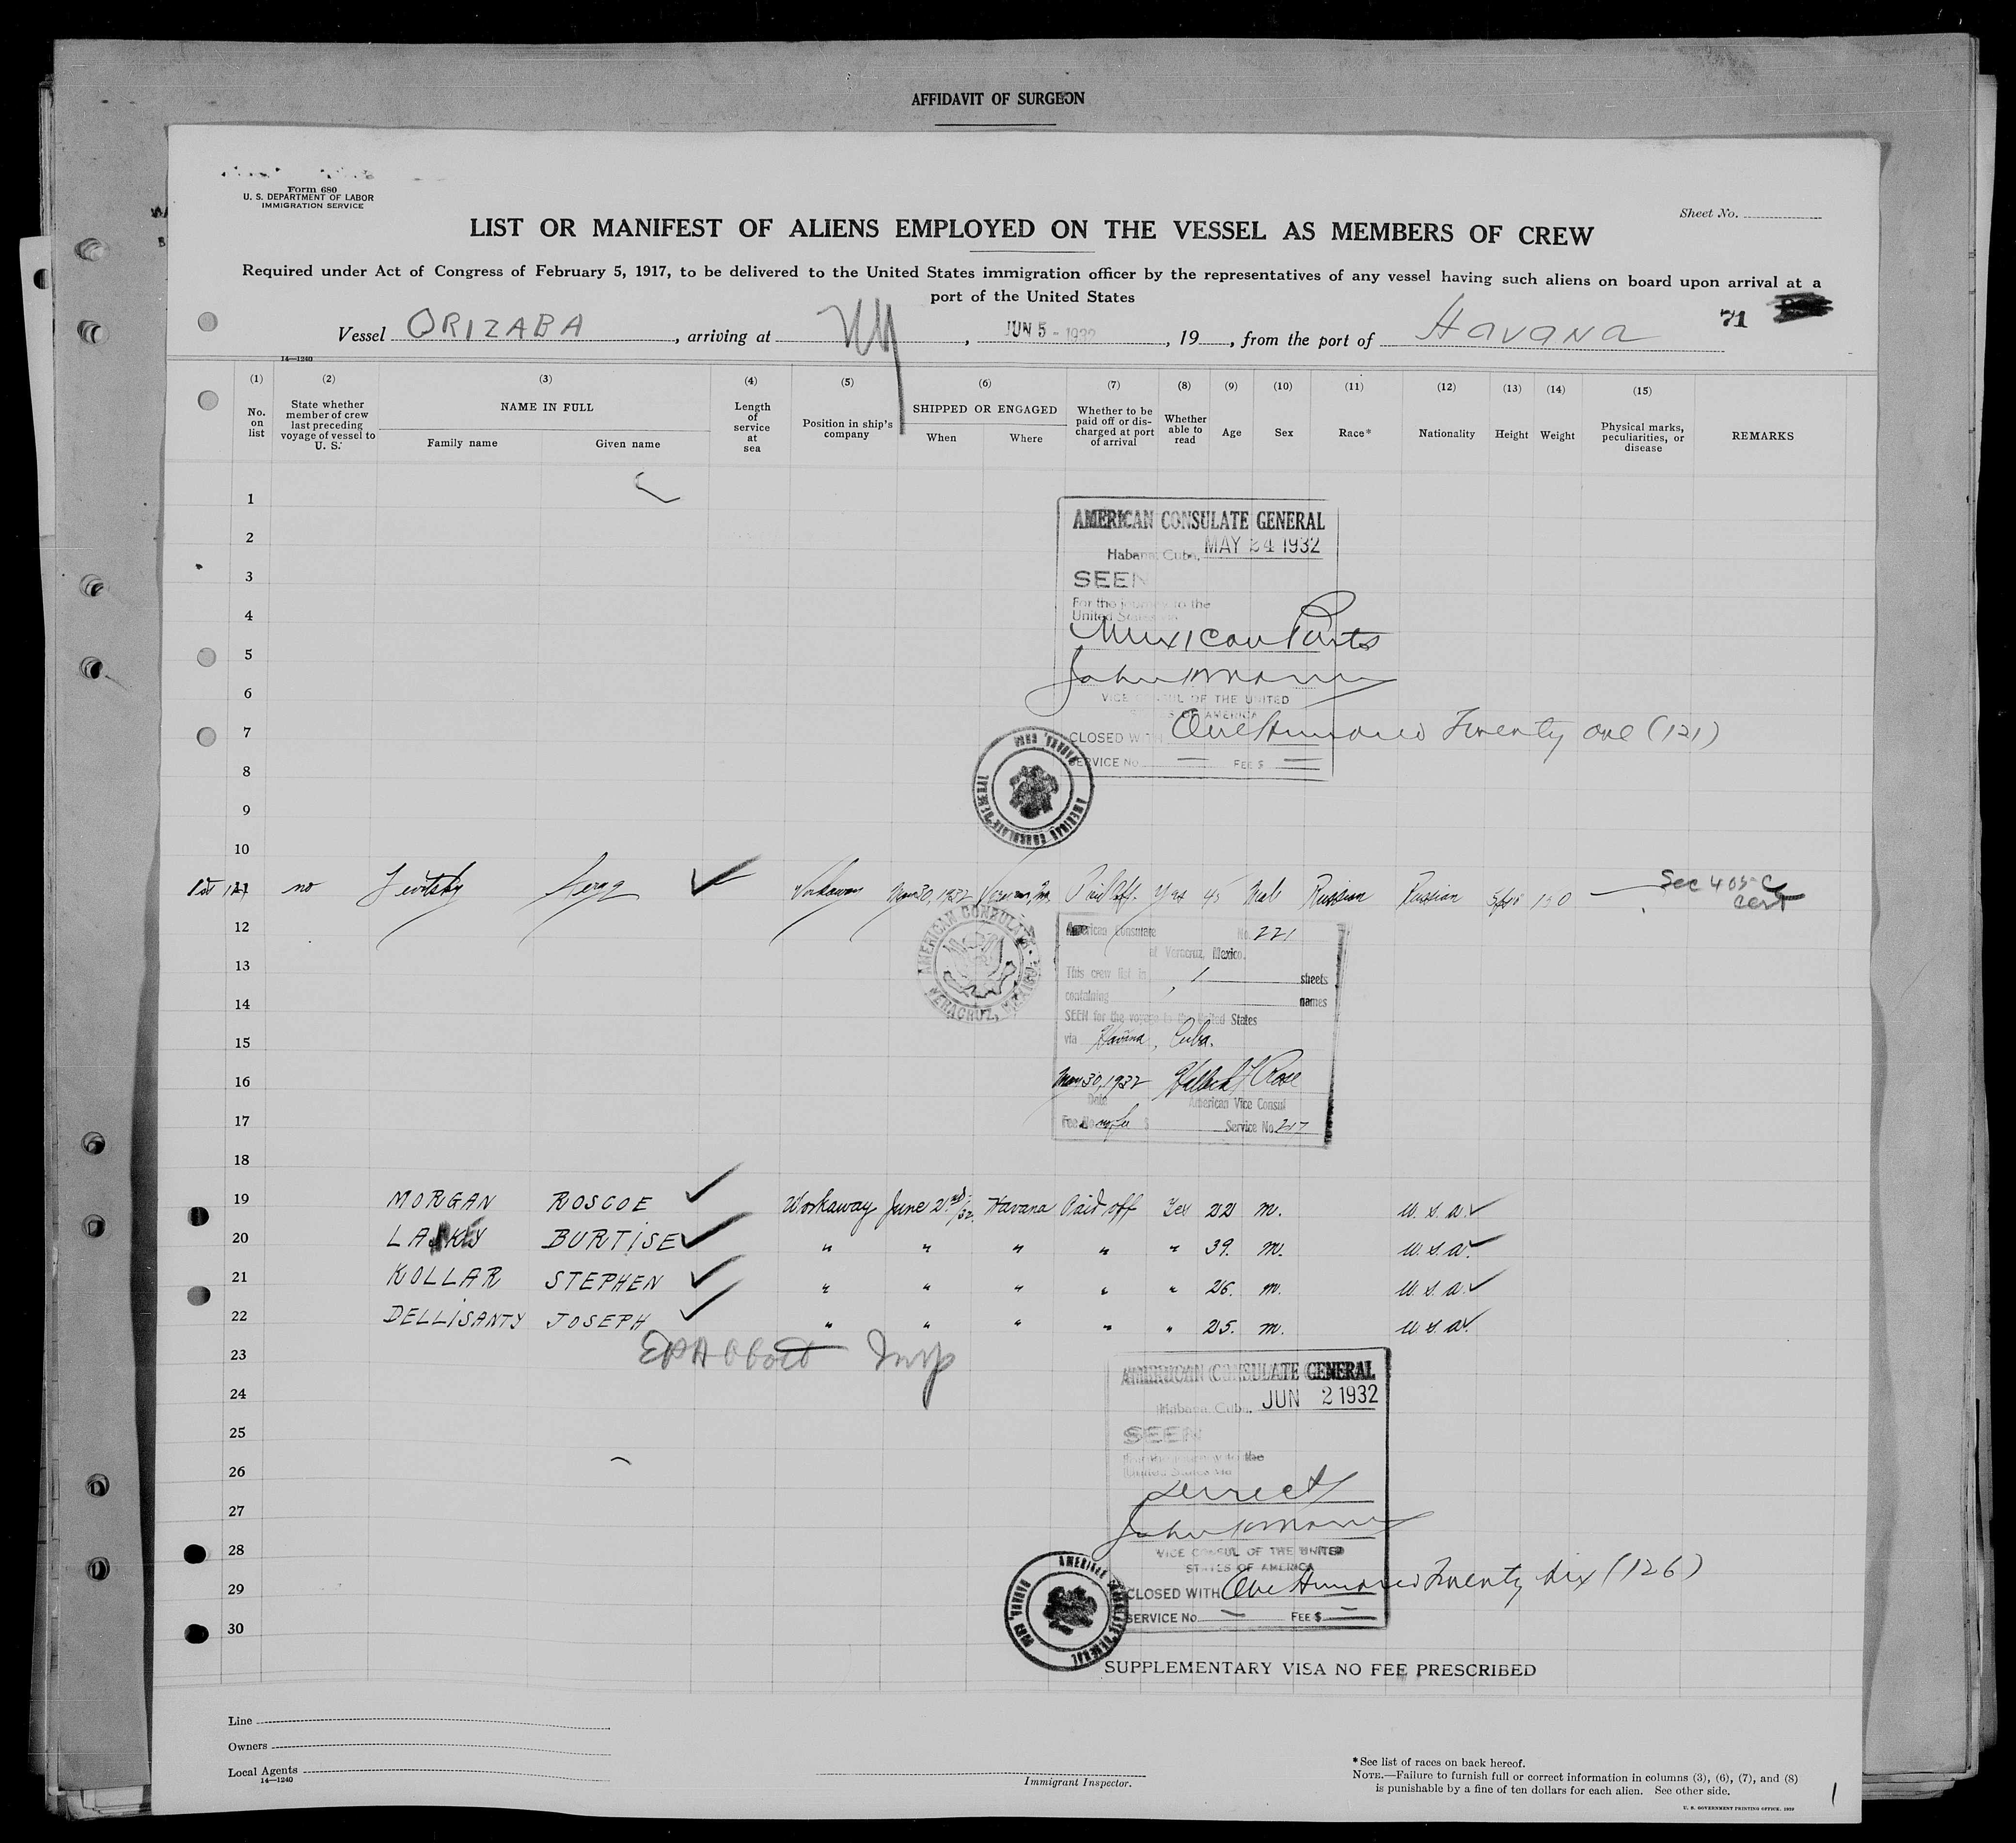 AFFIDAVIT OF SURGEON
Form 680
U. S. DEPARTMENT OF LABOR
IMMIGRATION SERVICE
Sheet No.
LIST OR MANIFEST OF ALIENS EMPLOYED ON THE VESSEL AS MEMBERS OF CREW
Required under Act of Congress of February 5, 1917, to be delivered to the United States immigration officer by the representatives of any vessel having such aliens on board upon arrival at a
port of the United States
71
Vessel ORIZABA, arriving at NY, JUN 5 - 1932, 19, from the port of Havana
14—1240
(1) (2) (3) (4) (5) (6) (7) (8) (9) (10) (11) (12) (13) (14) (15)
No. on list
State whether member of crew last preceding voyage of vessel to U. S.
NAME IN FULL
Family name Given name
Length of service at sea
Position in ship's company
SHIPPED OR ENGAGED
When Where
Whether to be paid off or discharged at port of arrival
Whether able to read
Age
Sex
Race*
Nationality
Height
Weight
Physical marks, peculiarities, or disease
REMARKS
1
2
3
4
5
6
7
8
9
10
AMERICAN CONSULATE GENERAL
Habana, Cuba, MAY 24 1932
SEEN
For the journey to the
United States via
Mexican Ports
VICE CONSUL OF THE UNITED
STATES OF AMERICA
CLOSED WITH One Hundred Twenty one (121)
SERVICE No. — FEE $ —
AMERICAN CONSULATE GENERAL
11 no Workaway May 30, 1932 Paid off. Yes 45 Male Russian Russian 150 — Sec 405-C
cert
12
13
14
15
16
17
18
AMERICAN CONSULATE
VERACRUZ, MEXICO
American Consulate No. 221
at Veracruz, Mexico.
This crew list in 1 sheets
containing 1 names
SEEN for the voyage to the United States
via Havana, Cuba.
May 30, 1932 Rose
Date American Vice Consul
Fee No. no fee $ Service No. 217
19 MORGAN ROSCOE Workaway June 2nd/32. Havana Paid off Yes 22 m. U. S. A.
20 BURTISE " " " " " 39. m. U. S. A.
21 KOLLAR STEPHEN " " " " " 26. m. U. S. A.
22 DELLISANTY JOSEPH " " " " " 25. m. U. S. A.
23
EPAbbott Insp
24
25
26
27
28
29
30
AMERICAN CONSULATE GENERAL
Habana, Cuba, JUN 2 1932
SEEN
For the journey to the
United States via
Direct
VICE CONSUL OF THE UNITED
STATES OF AMERICA
CLOSED WITH One Hundred Twenty six (126)
SERVICE No. — FEE $ —
AMERICAN CONSULATE GENERAL
SUPPLEMENTARY VISA NO FEE PRESCRIBED
Line
Owners
Local Agents
14—1240
Immigrant Inspector.
*See list of races on back hereof.
NOTE.—Failure to furnish full or correct information in columns (3), (6), (7), and (8)
is punishable by a fine of ten dollars for each alien. See other side.
U. S. GOVERNMENT PRINTING OFFICE. 1929
1